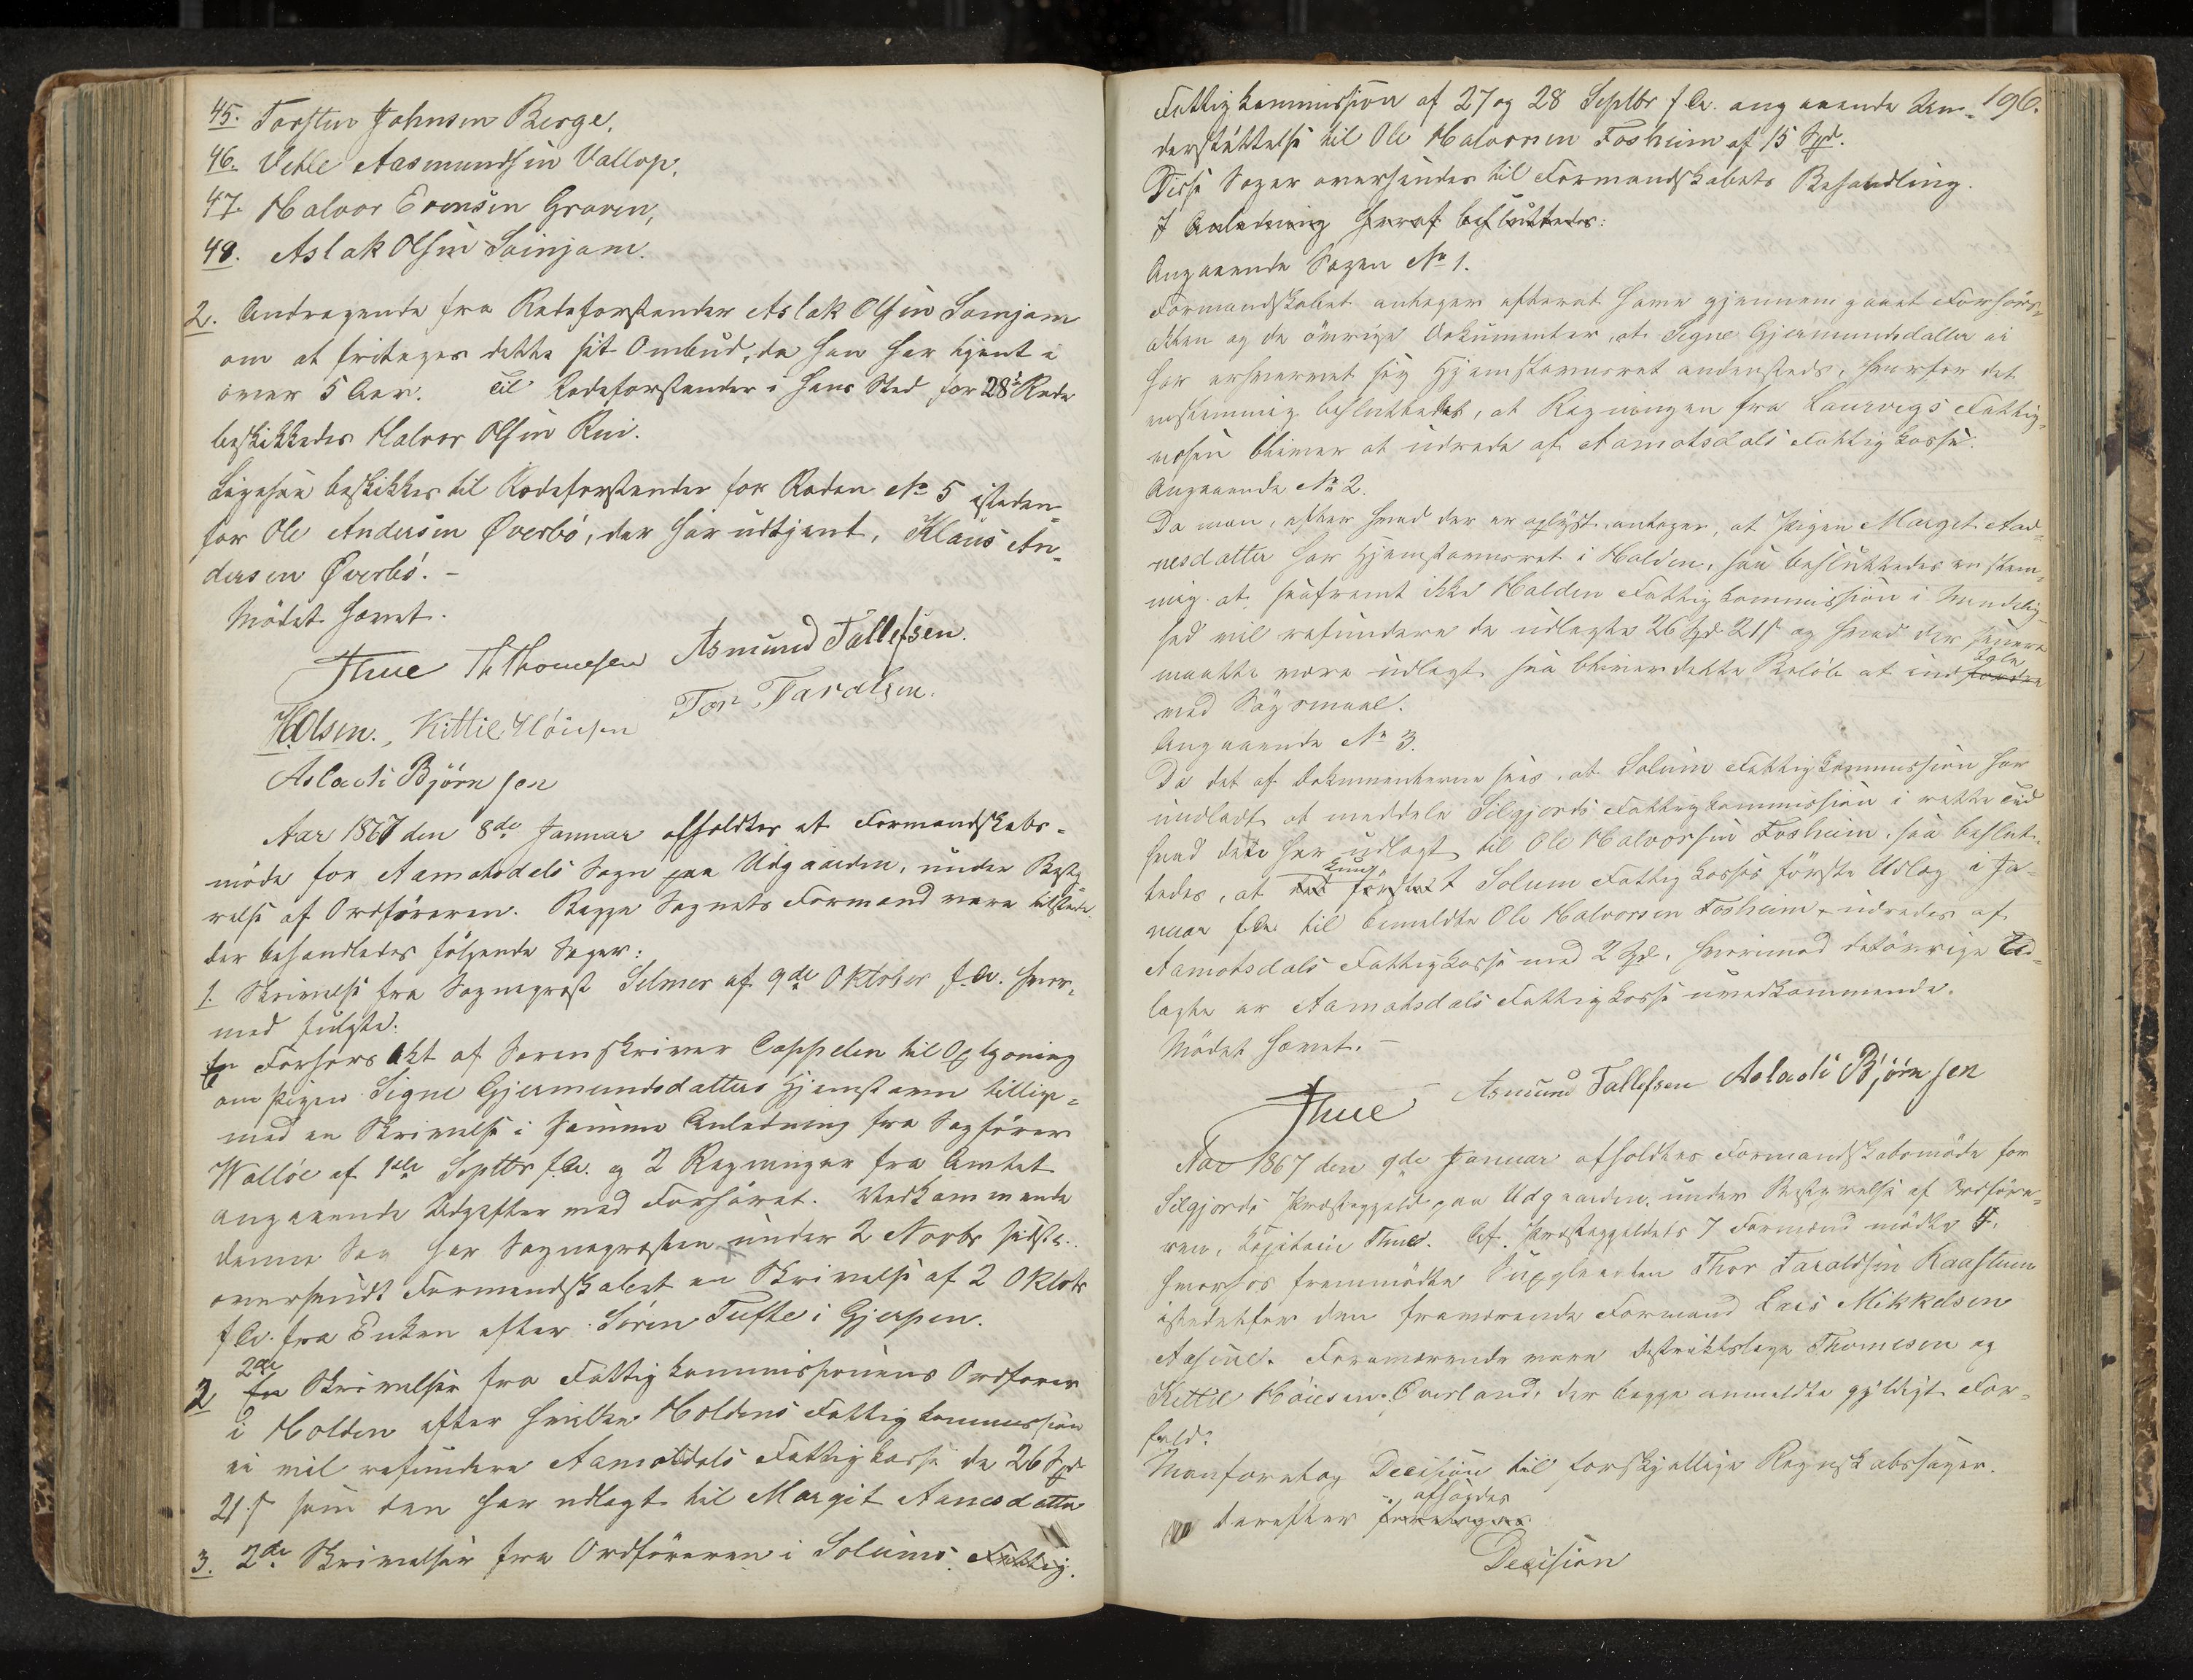 45. Torsten Johnsen Berge.
46. Vetle Aasmundsen Vallop.
47. Halvor Evensen Graven,
48. Aslak Olsen Sainjam.
2. Andragende fra Rodeforstander Aslak Olsen Samjam
om at fritages dette sit Ombud, da han har tjent i
over 5 Aar. Til Rodeforstander i hans Sted for 28de Rode
beskikkedes Halvor Olsen Rui.
Ligesaa beskikkes til Rodeforstander for Roden No 5 isteden-
for Ole Andersen Øverbö, der har udtjent, Klaus An-
dersen Øverbö. -
Mödet hævet.
Thue Th Thomesen Asmund Tallefsen.
H Olsen. Kittil Høiesen Tor Taraldsen.
Aslach Björnsen
Aar 1867 den 8de Januar afholdtes et Formandskabs-
möde for Aamotsdals Sogn paa Udgaarden, under Besty-
relse af Ordföreren. Begge Sognets Formænd vare tilstede.
der behandledes fölgende Sager:
1. Skrivelse fra Sogneprest Selmer af 9de Oktober f. A. hvor-
med fulgte:
En Forhørs Akt af Sorenskriver Cappelen til Oplysning
om Pigen Signe Gjermundsdatters Hjemstavn tillige-
med en Skrivelse i samme Anledning fra Sagförer
Wallöe af 1ste Septbr f. A. og 2 Regninger fra Amtet
angaaende Udgifter med Forhöret. Vedkommende
denne Sag har Sognepresten under 2 Novbr sidstl.
oversendt Formandskabet en Skrivelse af 2 Oktobr
f. A. fra Enken efter Sören Tufte i Gjerpen.
2. 2de En Skrivelser fra Fattigkommissionens Ordförer
i Holden efter hvilken Holdens Fattigkommission
ei vil refundere Aamotsdals Fattigkasse de 26 Spd
21 s som den har udlagt til Margit Aanesdatter
3. 2de Skrivelser fra Ordföreren i Solums Fattig.
196.
Fattigkommission af 27 og 28 Septbr f. A. angaaende Un-
derstöttelse til Ole Halvorsen Fosheim af 15 Spd.
Disse Sager oversendes til Formandskabets Behandling.
I Anledning heraf besluttedes:
Angaaende Sagen No 1.
Formandskabet antager efterat have gjennemgaaet Forhörs-
akten og de övrige Dokumenter, at Signe Gjermundsdatter ei
har erhvervet sig Hjemstavnsret andensteds, hvorfor det
enstemmig besluttedes, at Regningen fra Laurvigs Fattig-
væsen bliver at udrede af Aamotsdals Fattigkasse.
Angaaende No 2.
Da man, efter hvad der er oplyst, antager, at Pigen Margit Aad-
nesdatter har Hjemstavnsret i Holden, saa besluttedes enstem-
mig at, saafremt ikke Holden Fattigkommission i Mindelig-
hed vil refundere de udlagte 26 Spd 21 s og hvad der senere
maatte være udlagt, saa bliver dette Belöb at indtale fordre
med Sögsmaal.
Angaaende No 3.
Da det af Dokumenterne sees, at Solum Fattigkommission har
undladt at meddele Silgjords Fattigkommission i rette Tid
hvad dette har udlagt til Ole Halvorsen Fosheim, saa beslut-
tedes, at kun det förstnt Solum Fattigkasses förste Udlæg i Ja-
nuar f. A. til bemeldte Ole Halvorsen Fosheim, udredes af
Aamotsdals Fattigkasse med 2 Spd, hvorimod det övrige Ud-
lagte er Aamotsdals Fattigkasse uvedkommende.
Mödet hævet. -
Thue Asmund Tallefsen Aslach Björnsen
Aar 1867 den 9de Januar afholdtes Formandskabsmöde for
Silgjords Præstegjeld paa Udgaarden, under Bestyrelse af Ordföre-
ren, Kapitain Thue. Af Præstegjeldets 7 Formænd mödte 4,
hvorhos fremmödte Suppleanten Thor Taraldsen Raastum
istedetfor den fraværende Formand Lars Mikkelsen
Aasine. Fraværende vare Distriktslæge Thomesen og
Kittil Höiesen Överland, der begge anmeldte gyldigt For-
fald.
Man foretog Decision til forskjellige Regnskabssager.
derefter afsagdes foretoges:
Decision